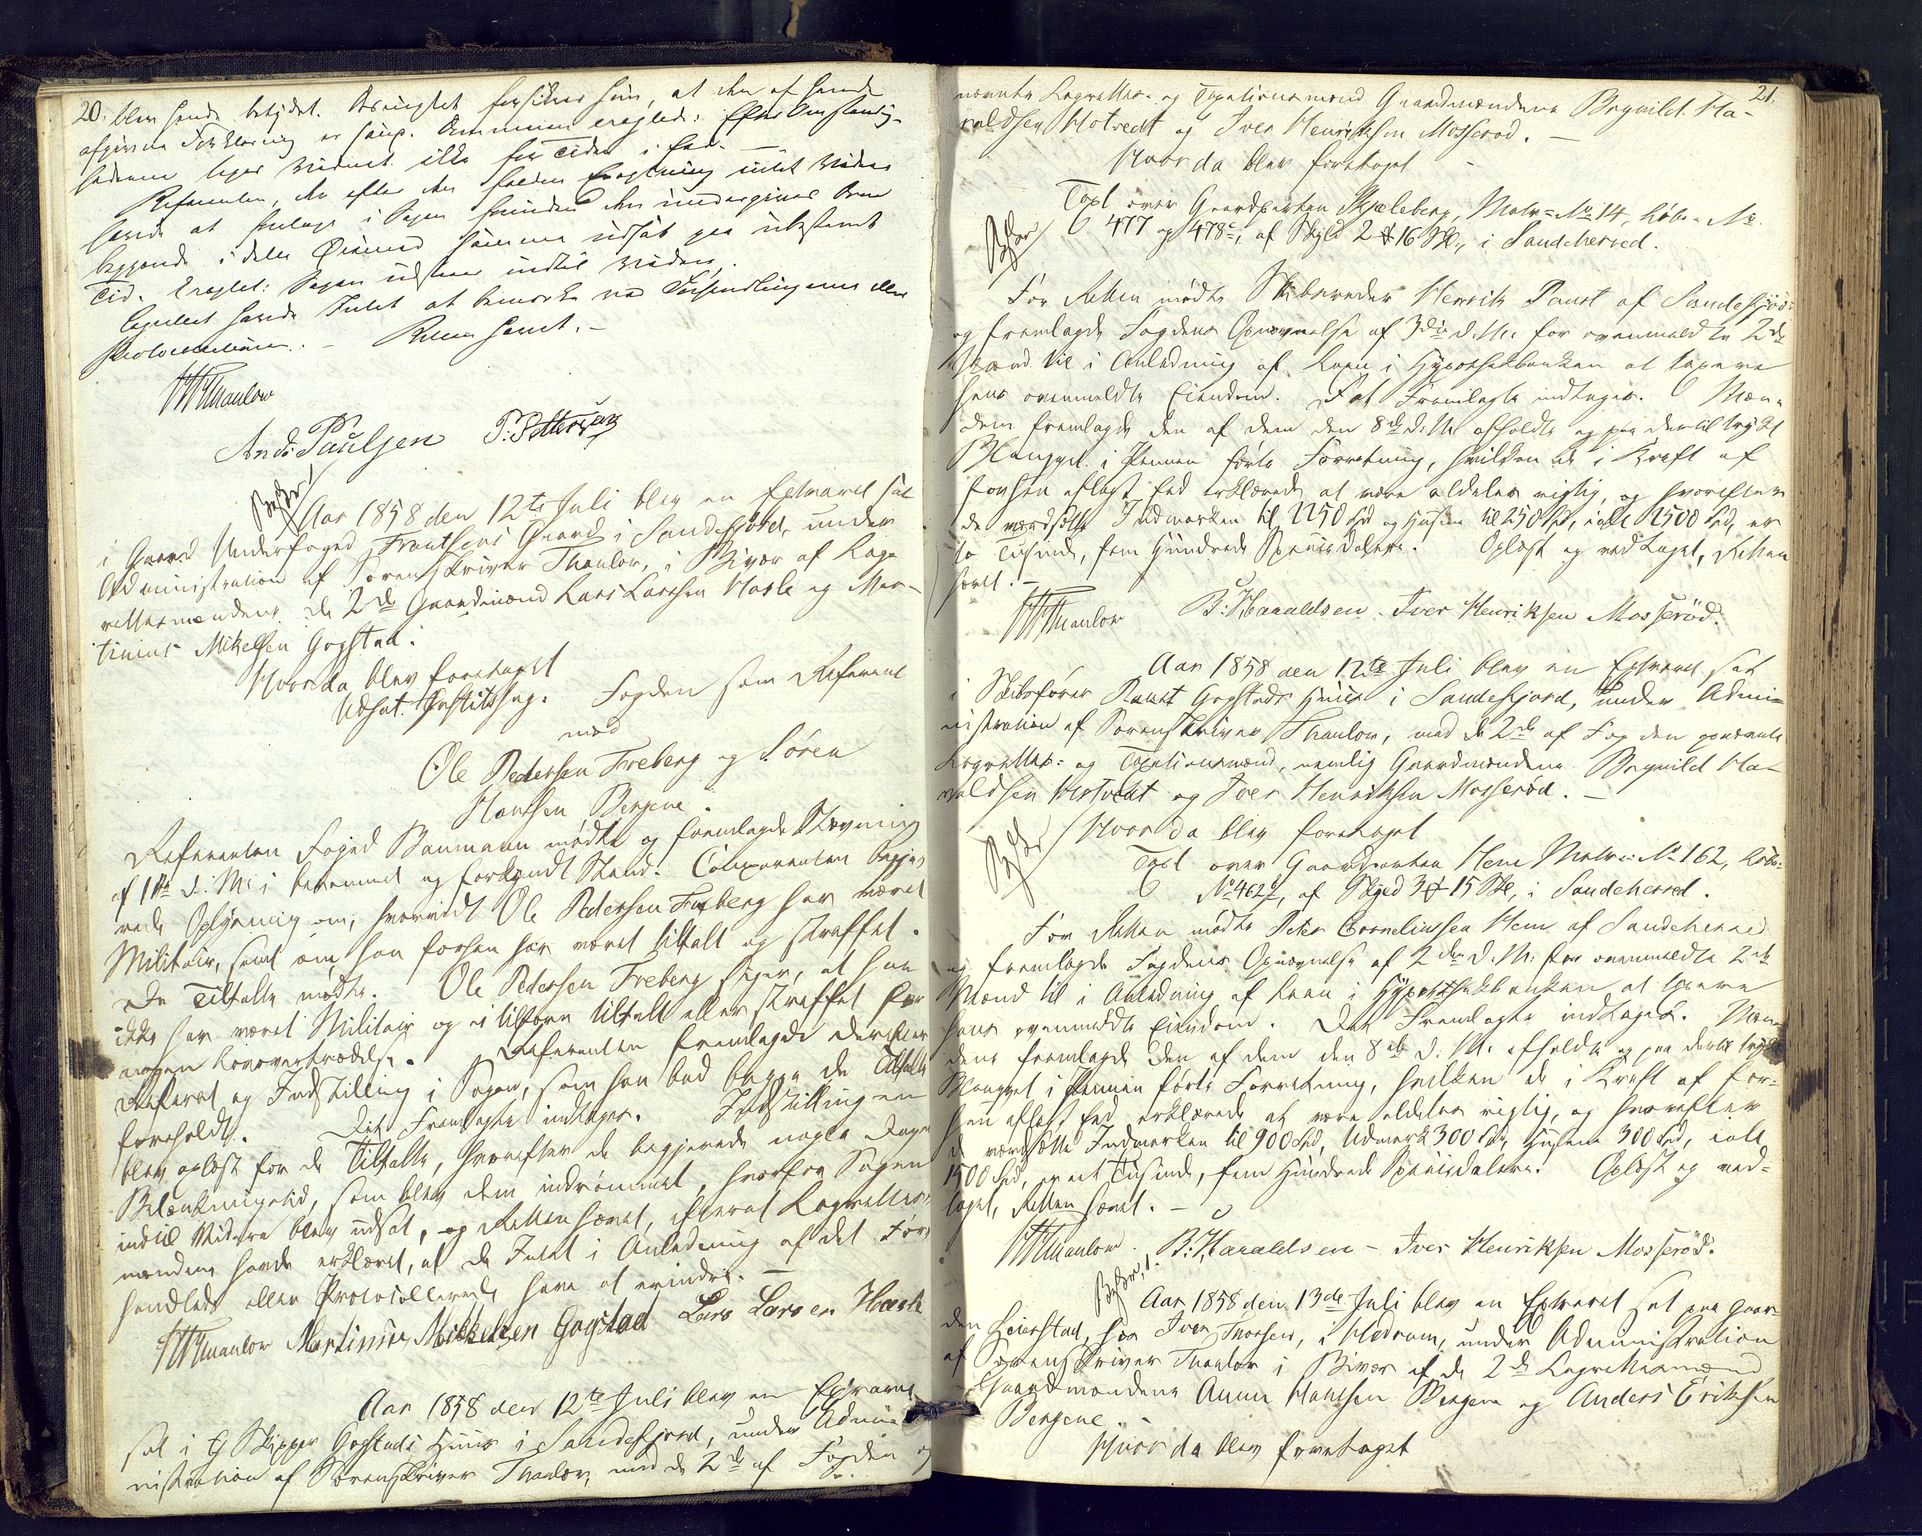 20.
blev hende betydet. Bevinglet forsikrer hun, at den af hende
afgivne Forklaring er sand.
Referenten,
havde at fremlægge i Sagen
Tid. Eragtet: Sagen udsættes indtil Videre.
Lagrettet havde Intet at bemærke ved Forhandlingerne eller
Protocollationen. – Retten hævet. –
Thaulow
And: Paulsen P: Pettersen
Aar 1858 den 12te Juli blev en Extraret sat
i Gaard Underfoged Frantsens Gaard i Sandefjord, under
Administration af Sorenskriver Thaulow, i Bivær af Lag-
rettesmændene de 2de Gaardmænd Lars Larssen Hasle og Mar-
tinius Mikelsen Gogstad.
Hvorda blev foretaget
Udsat Justitssag. Fogden som Referent
mod
Ole Pedersen Freberg og Søren
Hansen Bergene.
Referenten Foged Baumann mødte og fremlagde Stævning
af 1ste d: M: i bekommet og forkyndt Stand. Comparenten begjæ-
rede Oplysning om, hvorvidt Ole Pedersen Freberg har været
Militair, samt om han forhen har været tiltalt og straffet.
De Tiltalte mødte. Ole Pedersen Freberg siger, at han
ikke har været Militair og ei tilforn tiltalt eller straffet for
nogen Lovovertrædelse. Referenten fremlagde derefter
Referat og Indstilling i Sagen, som han bad begge de Tiltalte
foreholdt. Det Fremlagte indtages. Indstillingen
blev oplæst for de Tiltalte, hvorefter de begjerede nogle Dages
Betænkningstid, som blev dem indrømmet, hvorfor Sagen
indtil Videre blev udsat, og Retten hævet, efterat Lagrettes-
mændene havde erklæret, at de Intet i Anledning af det For-
handlede eller Protocollerede have at erindre. –
Thaulow Martinius Mikkelsen Gogstad Lars Larsen Hasle
Aar 1858 den 12te Juli blev en Extraret
sat i Skipper Gogstads Huus i Sandefjord, under Admi-
nistration af Sorenskriver Thaulow, med de 2de af Fogden op
21.
nævnte Lagrettes- og Taxationsmænd Gaardmændene Brynild Ha-
raldsen Hotvedt og Iver Henriksen Mosserød. –
Hvorda blev foretaget –
Taxt over Gaardparten Skjæleberg, Matr: No 14, Løbe-No
477 og 478c, af Skyld 2 ₰ 16 Sk, i Sandeherred.
For Retten mødte Skibsreder Henrik Paust af Sandefjord
og fremlagde Fogdens Opnævnelse af 3die d. M. for ovenmeldte 2de
Mænd til i Anledning af Laan i Hypothekbanken at taxere
hans ovenmeldte Eiendom. Det Fremlagte indtages. Mæn-
dene fremlagde den af dem den 8de d. M. afholdte og paa dertil trykt
Blanquet i Pennen førte Forretning, hvilken de i Kraft af
forhen aflagt Eed erklærede at være aldeles rigtig, og hvorefter
de værdsatte Indmarken til 1250 Spd og Husene til 250 Spd, ialt 1500 Spd, er
et Tusinde, fem Hundrede Speciedaler. Oplæst og vedtaget, Retten
hævet. –
Thaulow B: Haraldsen. Iver Henriksen Mosserød.
Aar 1858 den 12te Juli blev en Extraret sat
i Skibsfører Paust Gogstads Huus i Sandefjord, under Admi-
nistration af Sorenskriver Thaulow, med de 2de af Fogden opnævnte
Lagrettes- og Taxationsmænd, nemlig Gaardmændene Brynild Ha-
raldsen Hotvedt og Iver Henriksen Mosserød. –
Hvorda blev foretaget
Taxt over Gaardparten Hem Matr: No 162, Løbe-
No 462b, af Skyld 3 ₰ 15 Sk, i Sandeherred.
For Retten mødte Peter Corneliussen Hem af Sandeherred
og fremlagde Fogdens Opnævnelse af 2den d. M. for ovenmeldte 2de
Mænd til i Anledning af Laan i Hypothekbanken at taxere
hans ovenmeldte Eiendom. Det Fremlagte indtaget. Mæn-
dene fremlagde den af dem den 8de d. M. afholdte og paa dertil trykt
Blanquet i Pennen førte Forretning, hvilken de i Kraft af for-
hen aflagt Eed erklærede at være aldeles rigtig, og hvorefter
de værdsatte Indmarken til 900 Spd, Udmark 300 Spd, Husene 300 Spd, ialt
1500 Spd, er et Tusinde, fem Hundrede Speciedaler. Oplæst og ved-
taget, Retten hævet. –
Thaulow. B: Haraldsen – Iver Henriksen Mosserød.
Aar 1858 den 13de Juli blev en Extraret sat paa Gaar-
den Seierstad, hos Iver Thorsen, i Hedrum, under Administration
af Sorenskriver Thaulow i Bivær af de 2de Lagrettesmænd
Gaardmændene Anun Hansen Bergene og Anders Eriksen
Bergene. –
Hvorda blev foretaget